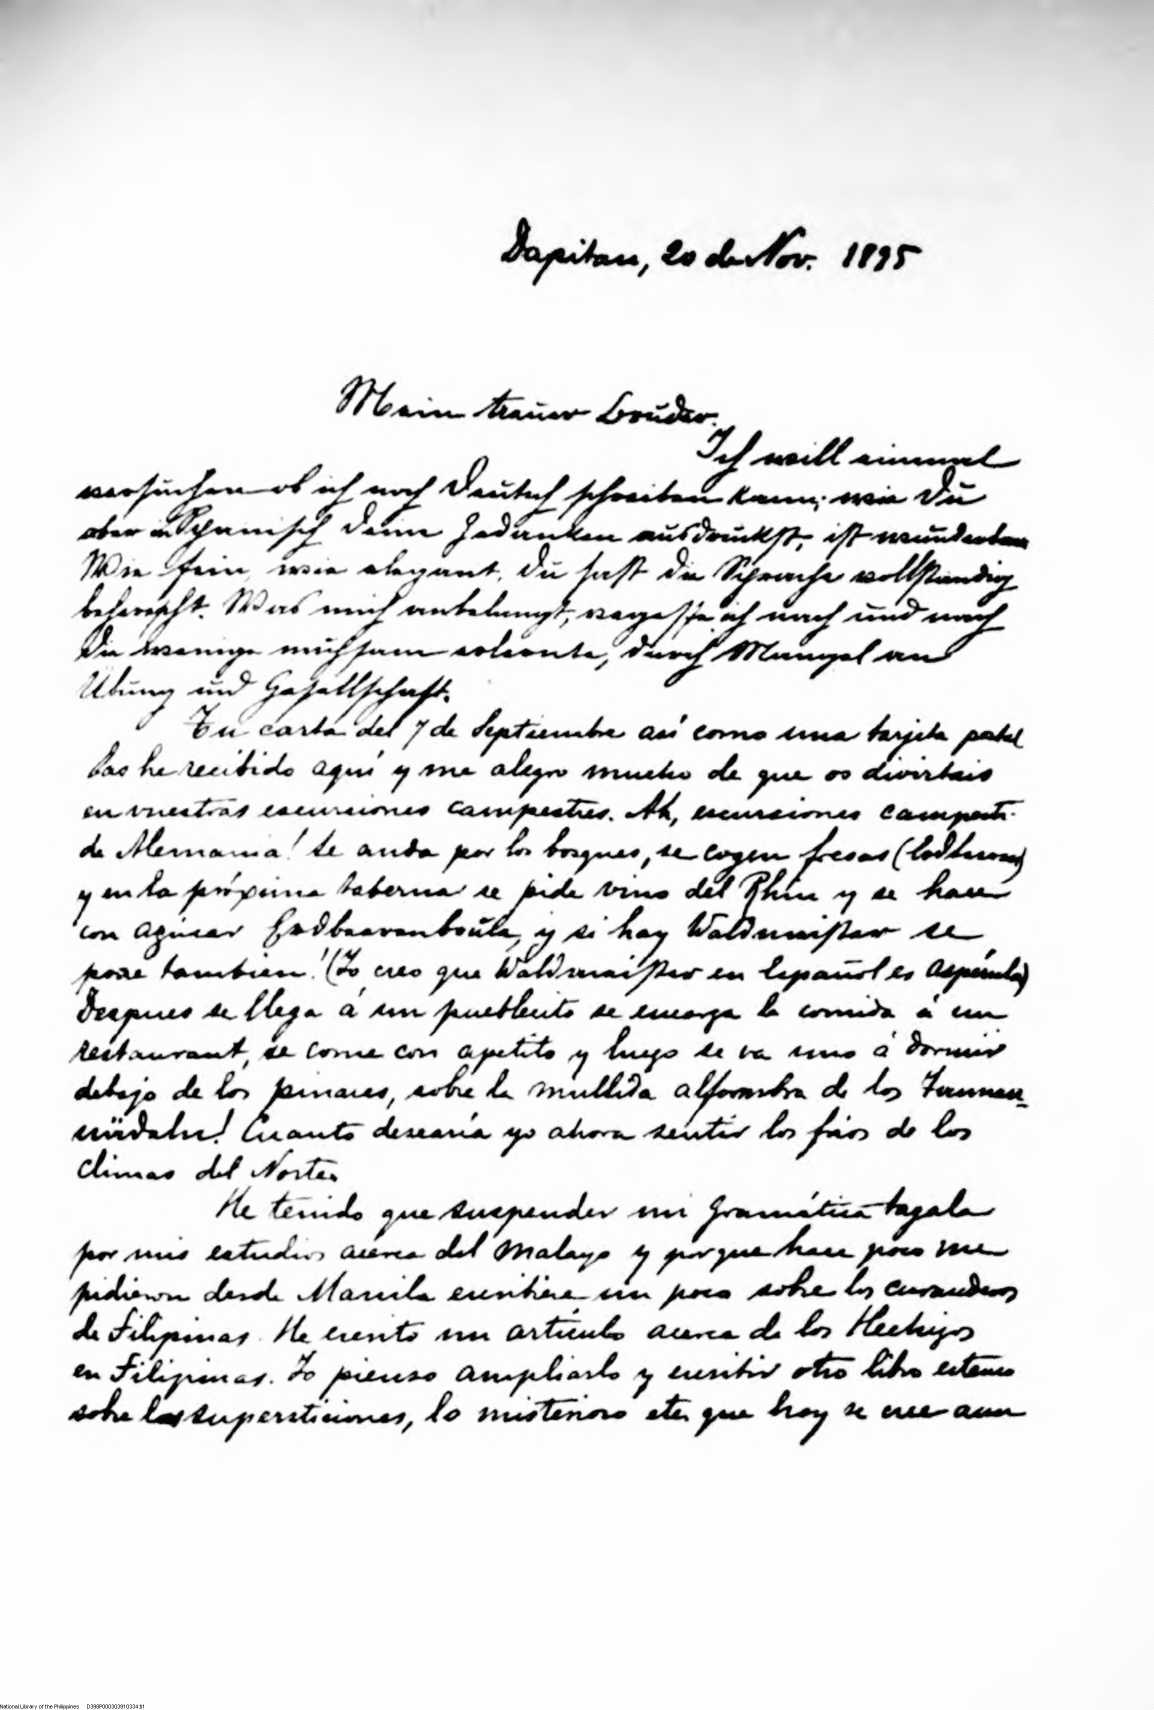 Dapitan, 20 de Nov. 1895
Mein treuer Bruder.
Ich will einmal
versuchen ob ich noch Deutsch schreiben kann; wie Du
aber in Spanisch Deine Gedanken ausdrückst, ist wunderbar
Wie fein, wie elegant. Du hast die Sprache vollständig
beherrscht. Was mich anbelangt, vergesse ich nach und nach
die wenige mühsam erlernte, durch Mangel an
Übung und Gesellschaft.
Tu carta del 7 de Septiembre así como una tarjeta postal
las he recibido aquí y me alegro mucho de que os divirtais
en vuestras escursiones campestres. Ah, escursiones campest.
de Alemania! Se anda por los bosques, se cogen fresas (Erdbeeren)
y en la próxima taberna se pide vino del Rhin y se hace
con azúcar Erdbeerenbowle, y si hay Waldmeister se
pone tambien! (Yo creo que Waldmeister en Español es aspérula)
Despues se llega á un pueblecito se encarga la comida á un
restaurant, se come con apetito y luego se va uno á dormir
debajo de los pinares, sobre la mullida alfombra de los Tannen-
nädeln! Cuanto desearía yo ahora sentir los fríos de los
climas del Norte.
He tenido que suspender mi gramática tagala
por mis estudios acerca del Malayo y porque hace poco me
pidieron desde Manila escribiera un poco sobre los curanderos
de Filipinas. He escrito un artículo acerca de los Hechizos
en Filipinas. Yo pienso ampliarlo y escribir otro libro estenso
sobre las supersticiones, lo misterioso etc. que hoy se cree aun
National Library of the Philippines